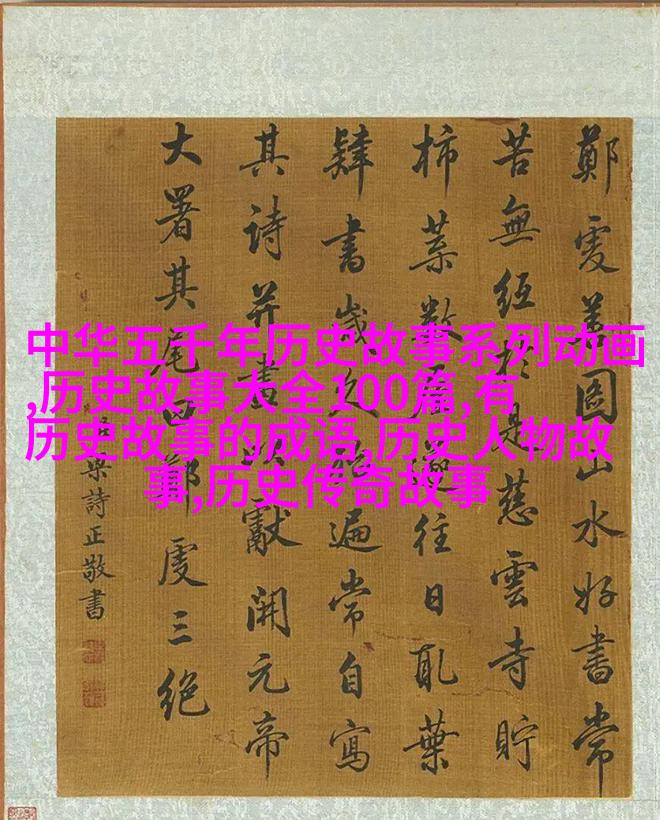 中华五千年历史故事系列动画
,历史故事大全100篇,有
历史故事的成语,历史人物故
事,历史传奇故事
鄭虔善圖山水好書常
苦無紙於是慈雲寺貯
柿葉數遂往日取葉
肄書歲久殆遍常自寫
其詩并畫以獻開元帝
大署其尾曰鄭虔三絶
梁詩正敬書